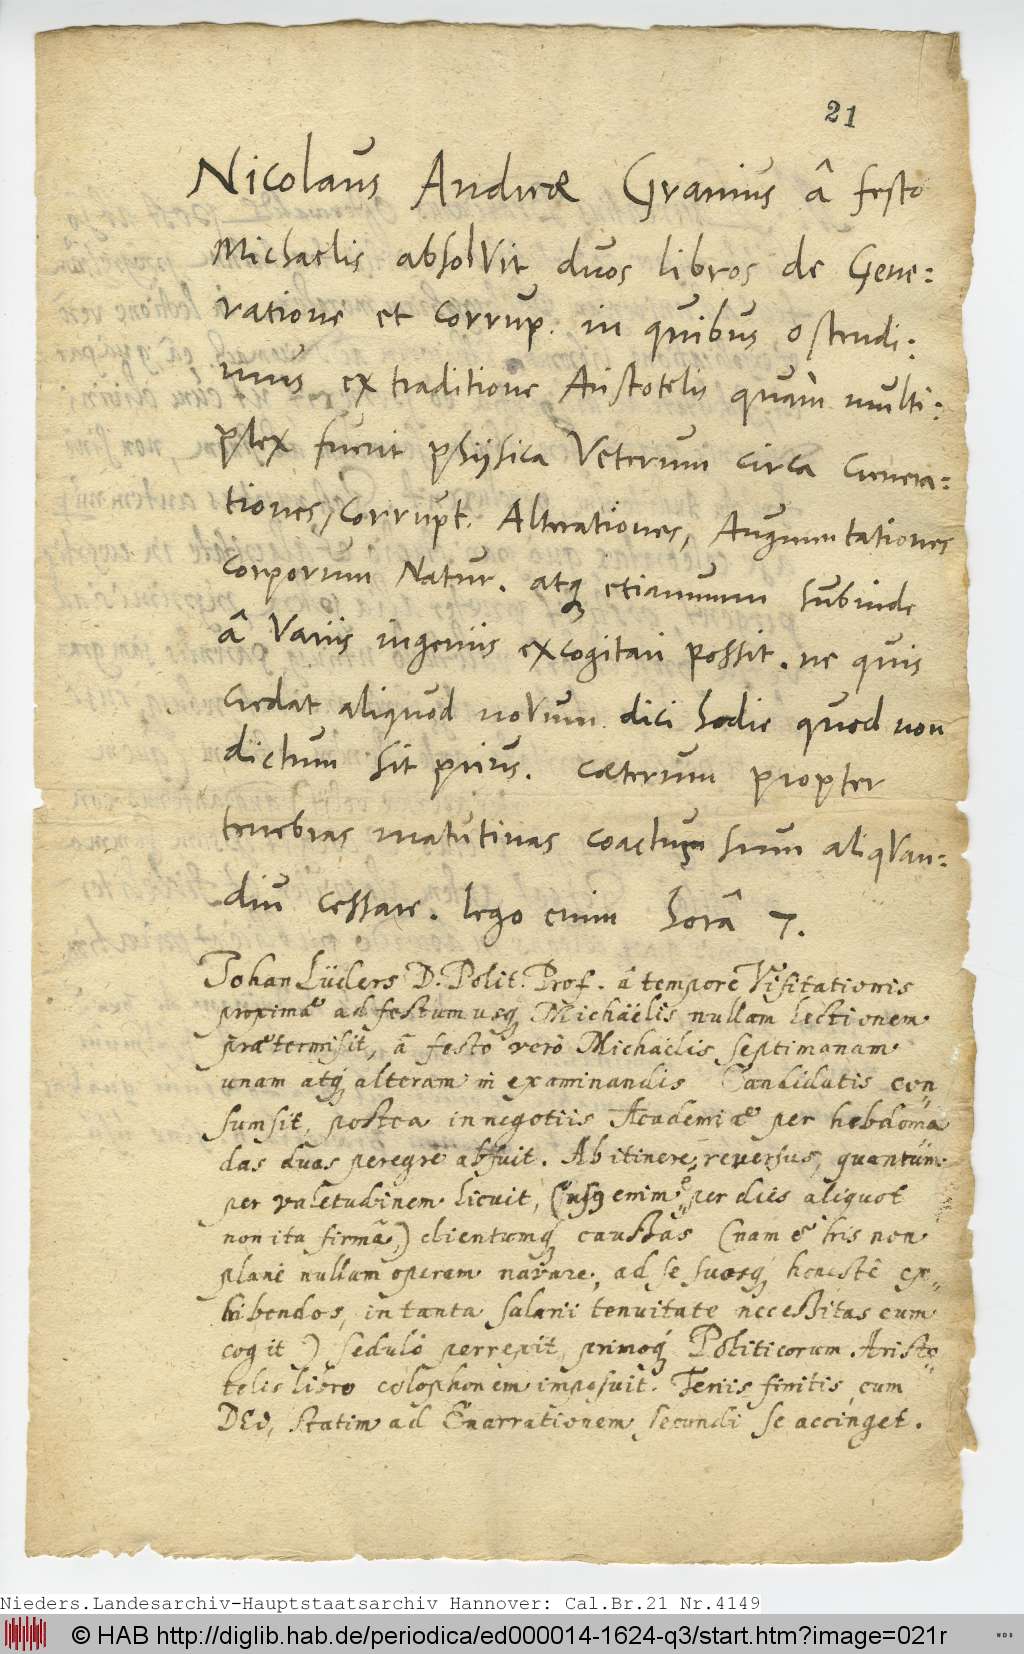 21
Nicolaus Andreæ Granius â festo
Michaelis absolvit duos libros de Gene=
ratione et corrup. in quibus ostendi=
mus ex traditione Aristotelis quàm multi=
plex fuerit physica Veterum circa Genera=
tiones, corrupt. Alterationes, Augmentationes
corporum Natur. atq etiamnum subinde
â Variis ingeniis excogitari possit. ne quis
credat aliquod novum dici hodie quod non
dictum sit prius. cæterum propter
tenebras matutinas coactus sum aliqvan=
diu cessare. lego enim horâ 7.
Johan Lüders D. Polit. Prof. â tempore Visitationis
proximæ ad festum usq Michaëlis nullam lectionem
prætermisit, â festo verò Michaëlis septimanam
unam atq alteram in examinandis Candidatis con
sumsit, postea in negotiis Academiæ per hebdoma
das duas peregrè abfuit. Ab itinere reversus, quantum
per valetudinem licuit, enim per dies aliquot
non ita firmâ,) clientumq caussas (nam & his non
planè nullam operam navare, ad se suosq honestè ex=
hibendos, in tanta salarii tenuitate necessitas eum
cogit) sedulò perrexit, primoq Politicorum Aristo=
telis libro colophonem imposuit. Feriis finitis, cum
DEO, statim ad Enarrationem secundi se accinget.
Nieders.Landesarchiv-Hauptstaatsarchiv Hannover: Cal.Br.21 Nr.4149
© HAB http://diglib.hab.de/periodica/ed000014-1624-q3/start.htm?image=021r